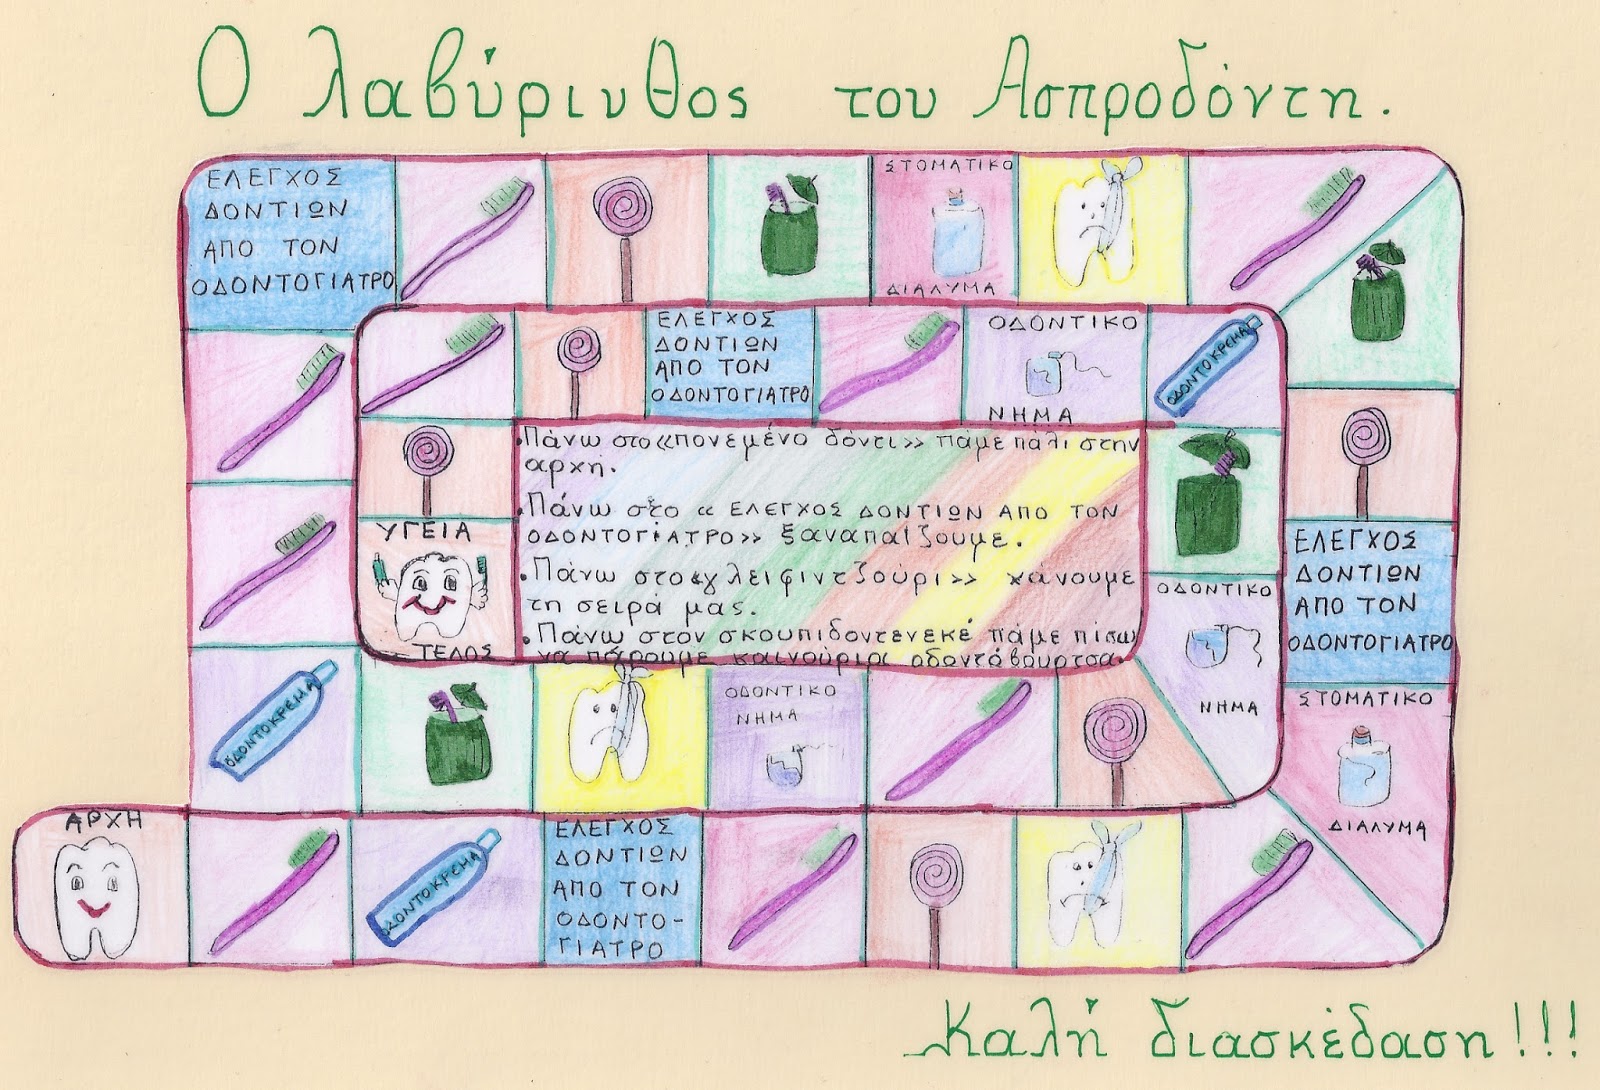 Ο λαβύρινθος του Ασπροδόντη.
ΕΛΕΓΧΟΣ
ΔΟΝΤΙΩΝ
ΑΠΟ ΤΟΝ
ΟΔΟΝΤΟΓΙΑΤΡΟ
ΣΤΟΜΑΤΙΚΟ
ΔΙΑΛΥΜΑ
ΕΛΕΓΧΟΣ
ΔΟΝΤΙΩΝ
ΑΠΟ ΤΟΝ
ΟΔΟΝΤΟΓΙΑΤΡΟ
ΟΔΟΝΤΙΚΟ
ΝΗΜΑ
ΟΔΟΝΤΟΚΡΕΜΑ
•Πάνω στο «πονεμένο δόντι» πάμε πάλι στην
αρχή.
•Πάνω στο « ΕΛΕΓΧΟΣ ΔΟΝΤΙΩΝ ΑΠΟ ΤΟΝ
ΟΔΟΝΤΟΓΙΑΤΡΟ» ξαναπαίζουμε.
•Πάνω στο «γλειφιντζούρι» χάνουμε
τη σειρά μας.
•Πάνω στον σκουπιδοντενεκέ πάμε πίσω
να πάρουμε καινούρια οδοντόβουρτσα.
ΥΓΕΙΑ
ΤΕΛΟΣ
ΟΔΟΝΤΙΚΟ
ΝΗΜΑ
ΕΛΕΓΧΟΣ
ΔΟΝΤΙΩΝ
ΑΠΟ ΤΟΝ
ΟΔΟΝΤΟΓΙΑΤΡΟ
ΣΤΟΜΑΤΙΚΟ
ΔΙΑΛΥΜΑ
ΟΔΟΝΤΟΚΡΕΜΑ
ΟΔΟΝΤΙΚΟ
ΝΗΜΑ
ΑΡΧΗ
ΟΔΟΝΤΟΚΡΕΜΑ
ΕΛΕΓΧΟΣ
ΔΟΝΤΙΩΝ
ΑΠΟ ΤΟΝ
ΟΔΟΝΤΟ-
ΓΙΑΤΡΟ
Καλή διασκέδαση!!!